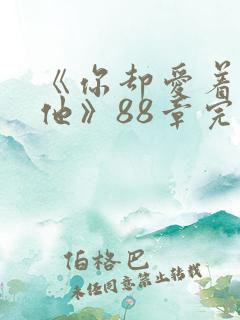 《你却爱着
他》88章完
伯格巴
未经同意禁止转载